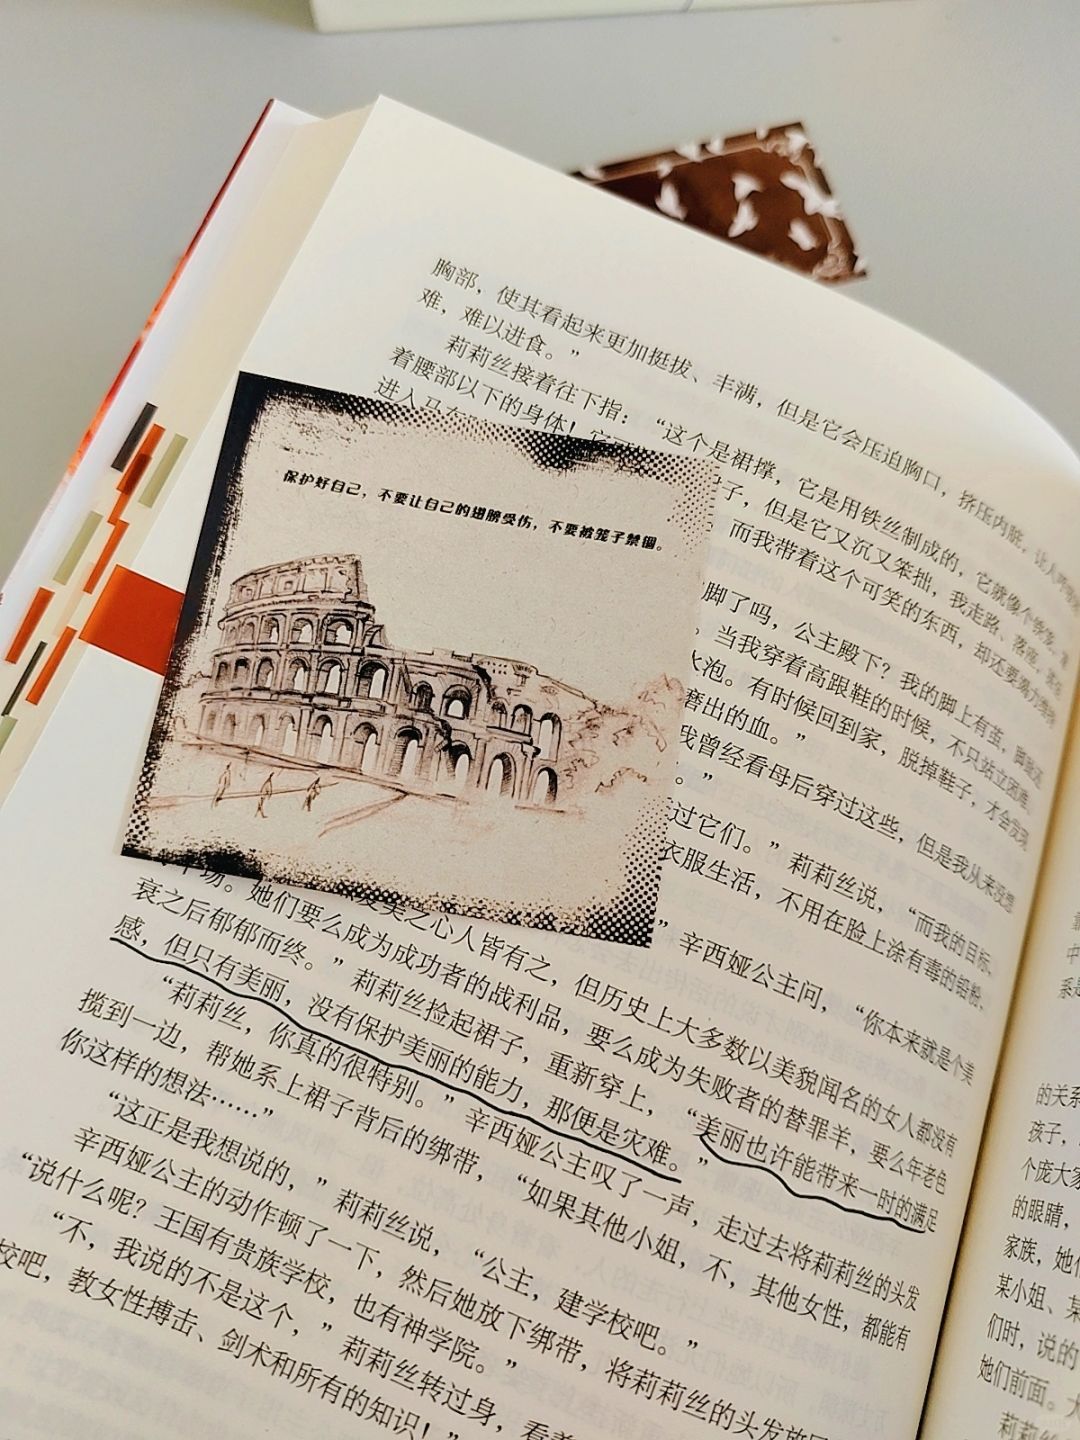 胸部，使其看起来更加挺拔、丰满，但是它会压迫胸口，挤压内脏，让人呼吸
难，难以进食。”
莉莉丝接着往下指：“这个是裙撑，它是用铁丝制成的，它就像个
着腰部以下的身体！它 子，但是它又沉又笨拙，我走路、落座、
进入马车 而我带着这个可笑的东西，却还要竭力维持
保护好自己，不要让自己的翅膀受伤，不要被笼子禁锢。
脚了吗，公主殿下？我的脚上有茧，脚趾还
。当我穿着高跟鞋的时候，不只站立困难，
水泡。有时候回到家，脱掉鞋子，才会发现
磨出的血。”
我曾经看母后穿过这些，但是我从来没想
。”
过它们。”莉莉丝说，“而我的目标、
衣服生活，不用在脸上涂有毒的铅粉，
”辛西娅公主问，“你本来就是个美
爱美之心人皆有之，但历史上大多数以美貌闻名的女人都没有
场。她们要么成为成功者的战利品，要么成为失败者的替罪羊，要么年老色
衰之后郁郁而终。”莉莉丝捡起裙子，重新穿上，“美丽也许能带来一时的满足
感，但只有美丽，没有保护美丽的能力，那便是灾难。”
“莉莉丝，你真的很特别。”辛西娅公主叹了一声，走过去将莉莉丝的头发
揽到一边，帮她系上裙子背后的绑带，“如果其他小姐，不，其他女性，都能有
你这样的想法……”
“这正是我想说的，”莉莉丝说，“公主，建学校吧。”
辛西娅公主的动作顿了一下，然后她放下绑带，将莉莉丝的头发放
“说什么呢？王国有贵族学校，也有神学院。”
“不，我说的不是这个，”莉莉丝转过身，看着
校吧，教女性搏击、剑术和所有的知识！”
中
系是
的关系
孩子，
个庞大家
的眼睛，
家族，她们
某小姐、某
们时，说的
她们前面。大
莉莉丝